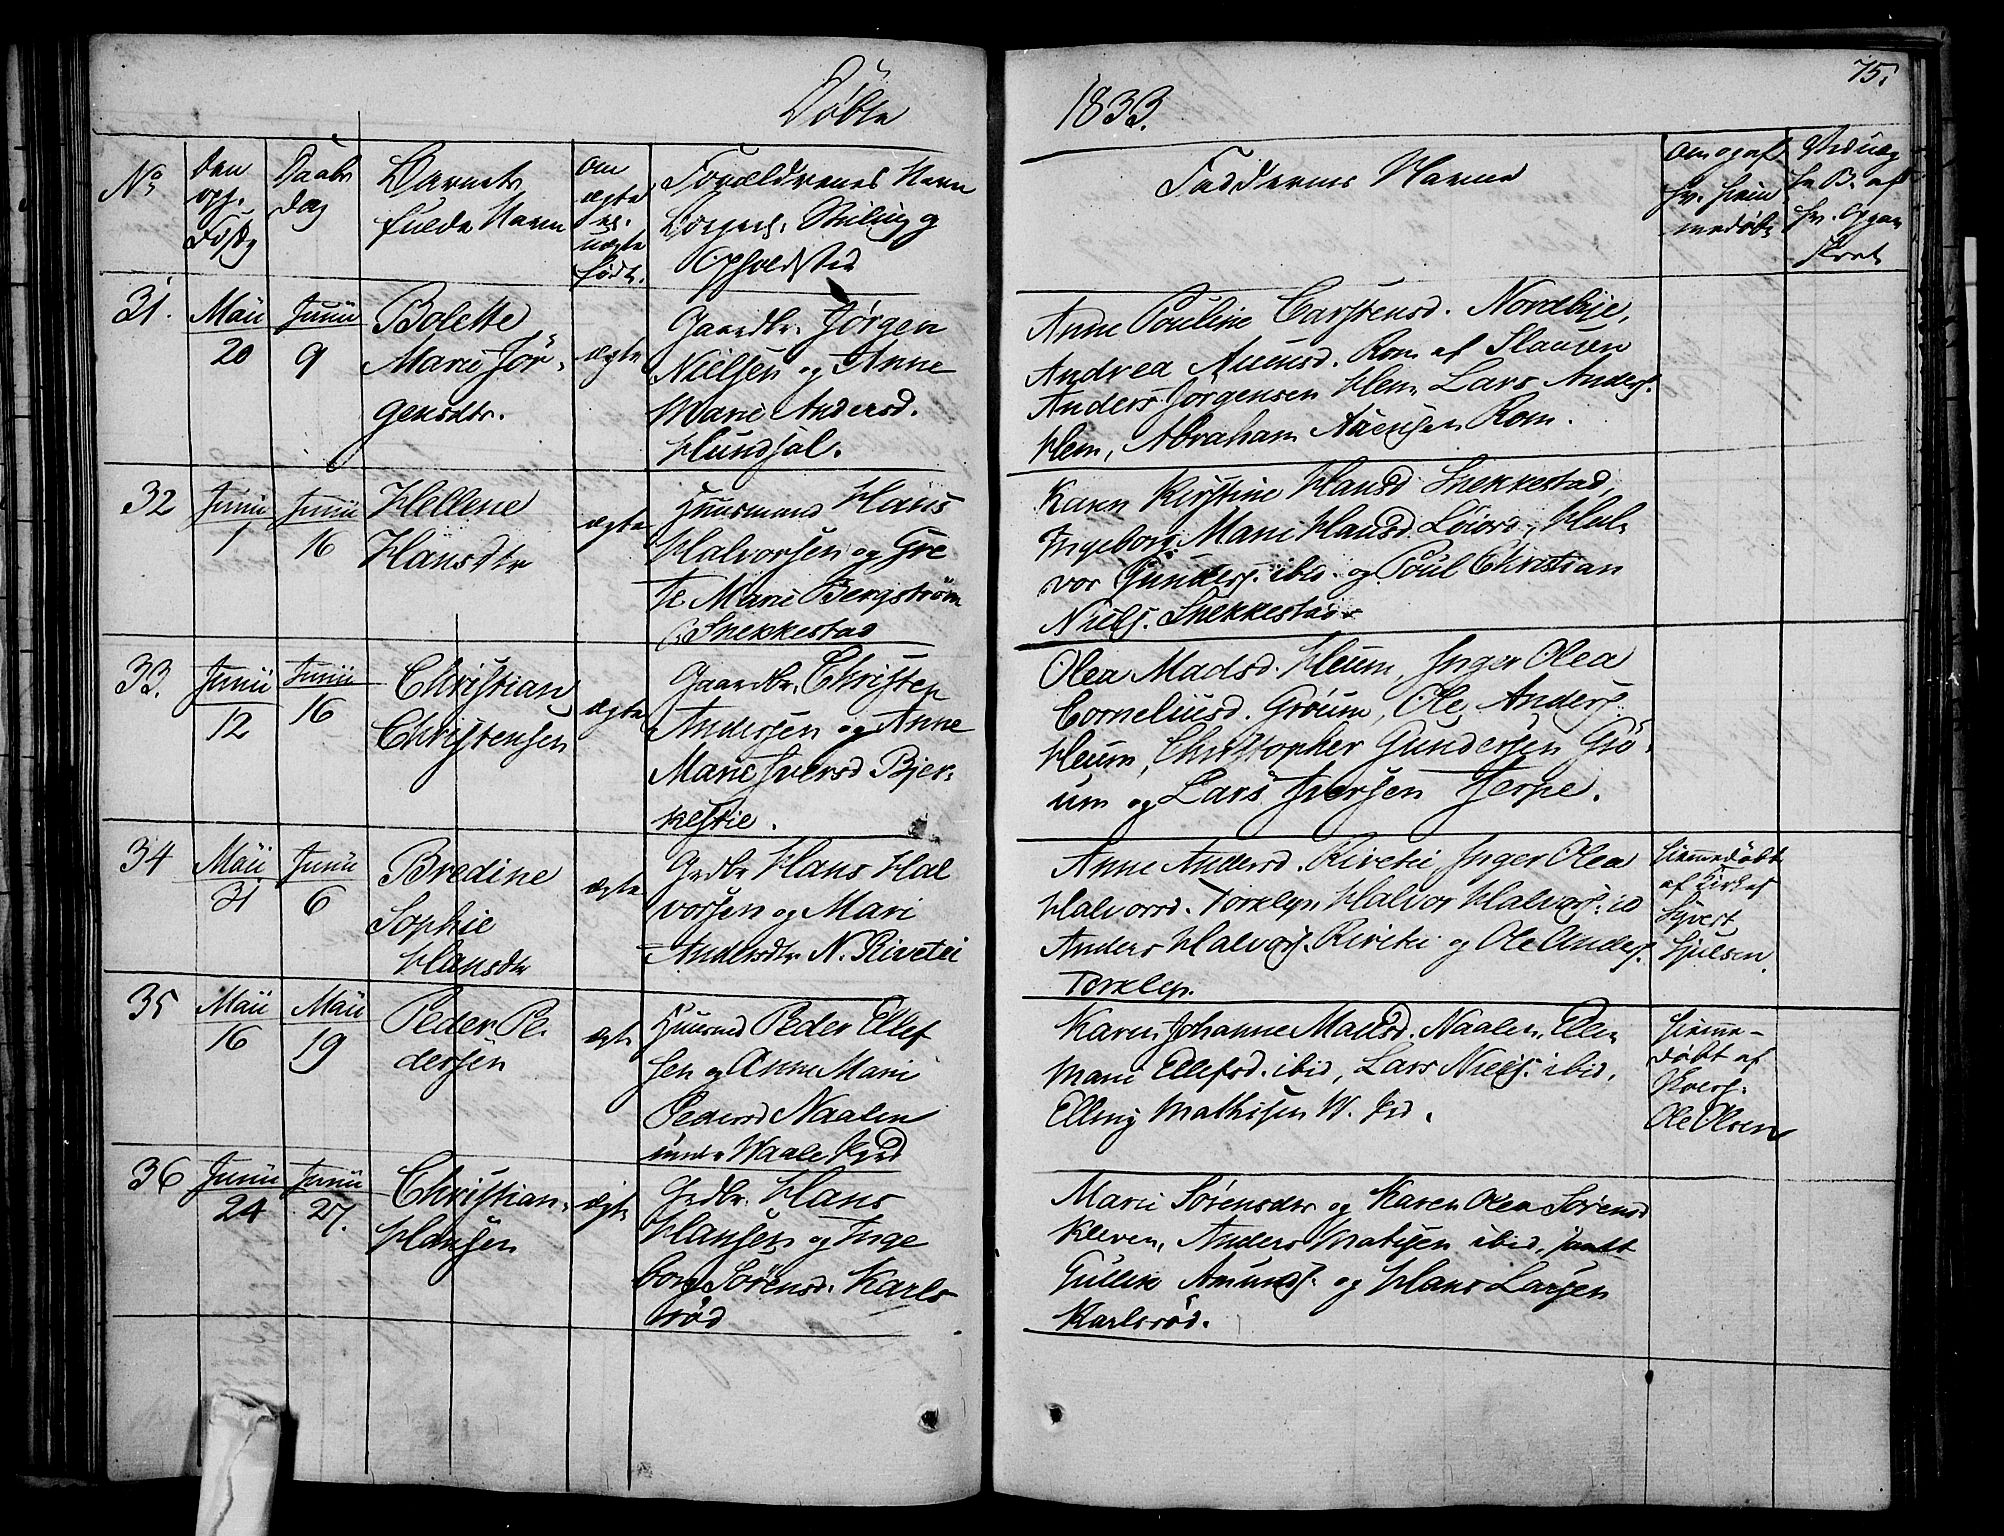 Døbte
1833.
75.
No
Den
opf.
Daabs
dag
Barnets
fulde Navn
Om
ægte
el.
uægte
født.
Forældrenes Navn
Opholdsted
Faddernes Navne
31.
Maii
20
Junii
9
Bolette
Marie Jör-
gensdtr.
ægte
Gaardbr. Jørgen
Nielsen og Anne
Marie Andersd.
Hundsal.
Anne Pouline Carstensd. Nordbye,
Andrea Amundsd. Rom af Slausen
Anders Jørgensen Hem, Lars Anders.
Hem, Abraham Rom.
32
Junii
1
Junii
16
Hellene
Hansdtr
ægte
Huusmand Hans
Halvorsen og Gre
te Marie Bergstrøm
Snekkestad
Karen Kirstine Hansd Snekkestad,
Ingeborg Marie Hansd. Hal-
vor Gunders. ibid. og Poul Christian
Niels. Snekkestad
33.
Junii
12
Junii
16
Christian
Christensen
ægte
Gaardbr. Christen
Andersen og Anne
Marie Iversd Bjer-
kestie.
Olea Madsd. Heum, Inger Olea
Corneliusd. Grøum, Ole Anders.
Heum, Christopher Gundersen Grö-
um og Lars Iversen Jerpe.
34
Maii
31
Junii
6
Bredine
Sophie
Hansdtr
ægte
Grdbr Hans Hal
vorsen og Mari
Andersdtr N. Rivetei
Anne Andersd. Rivetei Inger Olea
Halvorsd. Torklep Halvor Halvors. ib
Anders Halvors. Rivetei og Ole Anders.
Torklep.
hiemmedøbt
af Kirkes.
Syvert
Hjulsen.
35
Maii
16
Maii
19
Peder Pe-
dersen
ægte
Huusmd Peder Ellef
sen og Anne Marie
Pedersd Naalen
under Waale Prgd
Karen Johanne Madsd. Naalen, Ellen
Marie Ellefsd. ibid, Lars Niels. ibid,
Elling Mathisen W. Prd.
hiemme-
døbt af
Ole Olsen
36
Junii
24
Junii
27.
Christian
Hansen
ægte
Grdbr. Hans
Hansen og Inge
borg Sørensd. Karls
rød
Marie Sørensdtr og Karen Olea Sørensd
Kleven, Anders Matisen ibid, samt
Gullik Amunds. og Hans Larsen
Karlsrød.